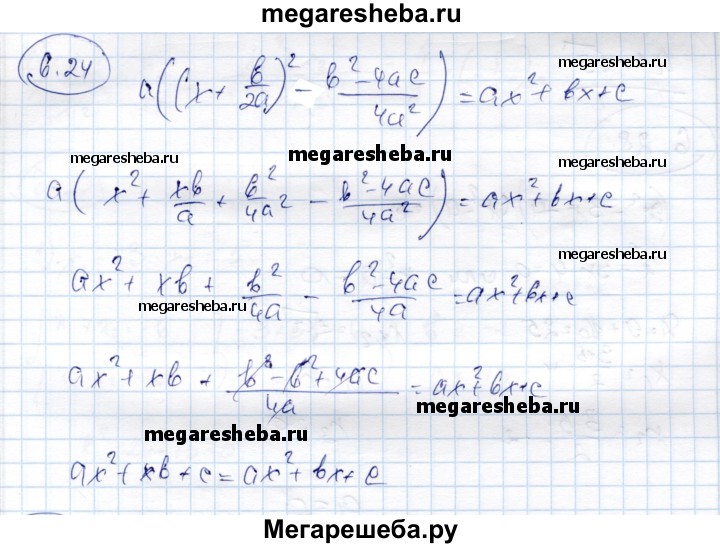 megaresheba.ru
6.24 a((x + b/2a)² - (b² - 4ac)/4a²) = ax² + bx + c
megaresheba.ru
megaresheba.ru megaresheba.ru
a(x² + xb/a + b²/4a² - (b² - 4ac)/4a²) = ax² + bx + c
megaresheba.ru
ax² + xb + b²/4a - (b² - 4ac)/4a = ax² + bx + c
megaresheba.ru
ax² + xb + (b² - b² + 4ac)/4a = ax² + bx + c
megaresheba.ru
megaresheba.ru
ax² + xb + c = ax² + bx + c
Мегарешеба.ру